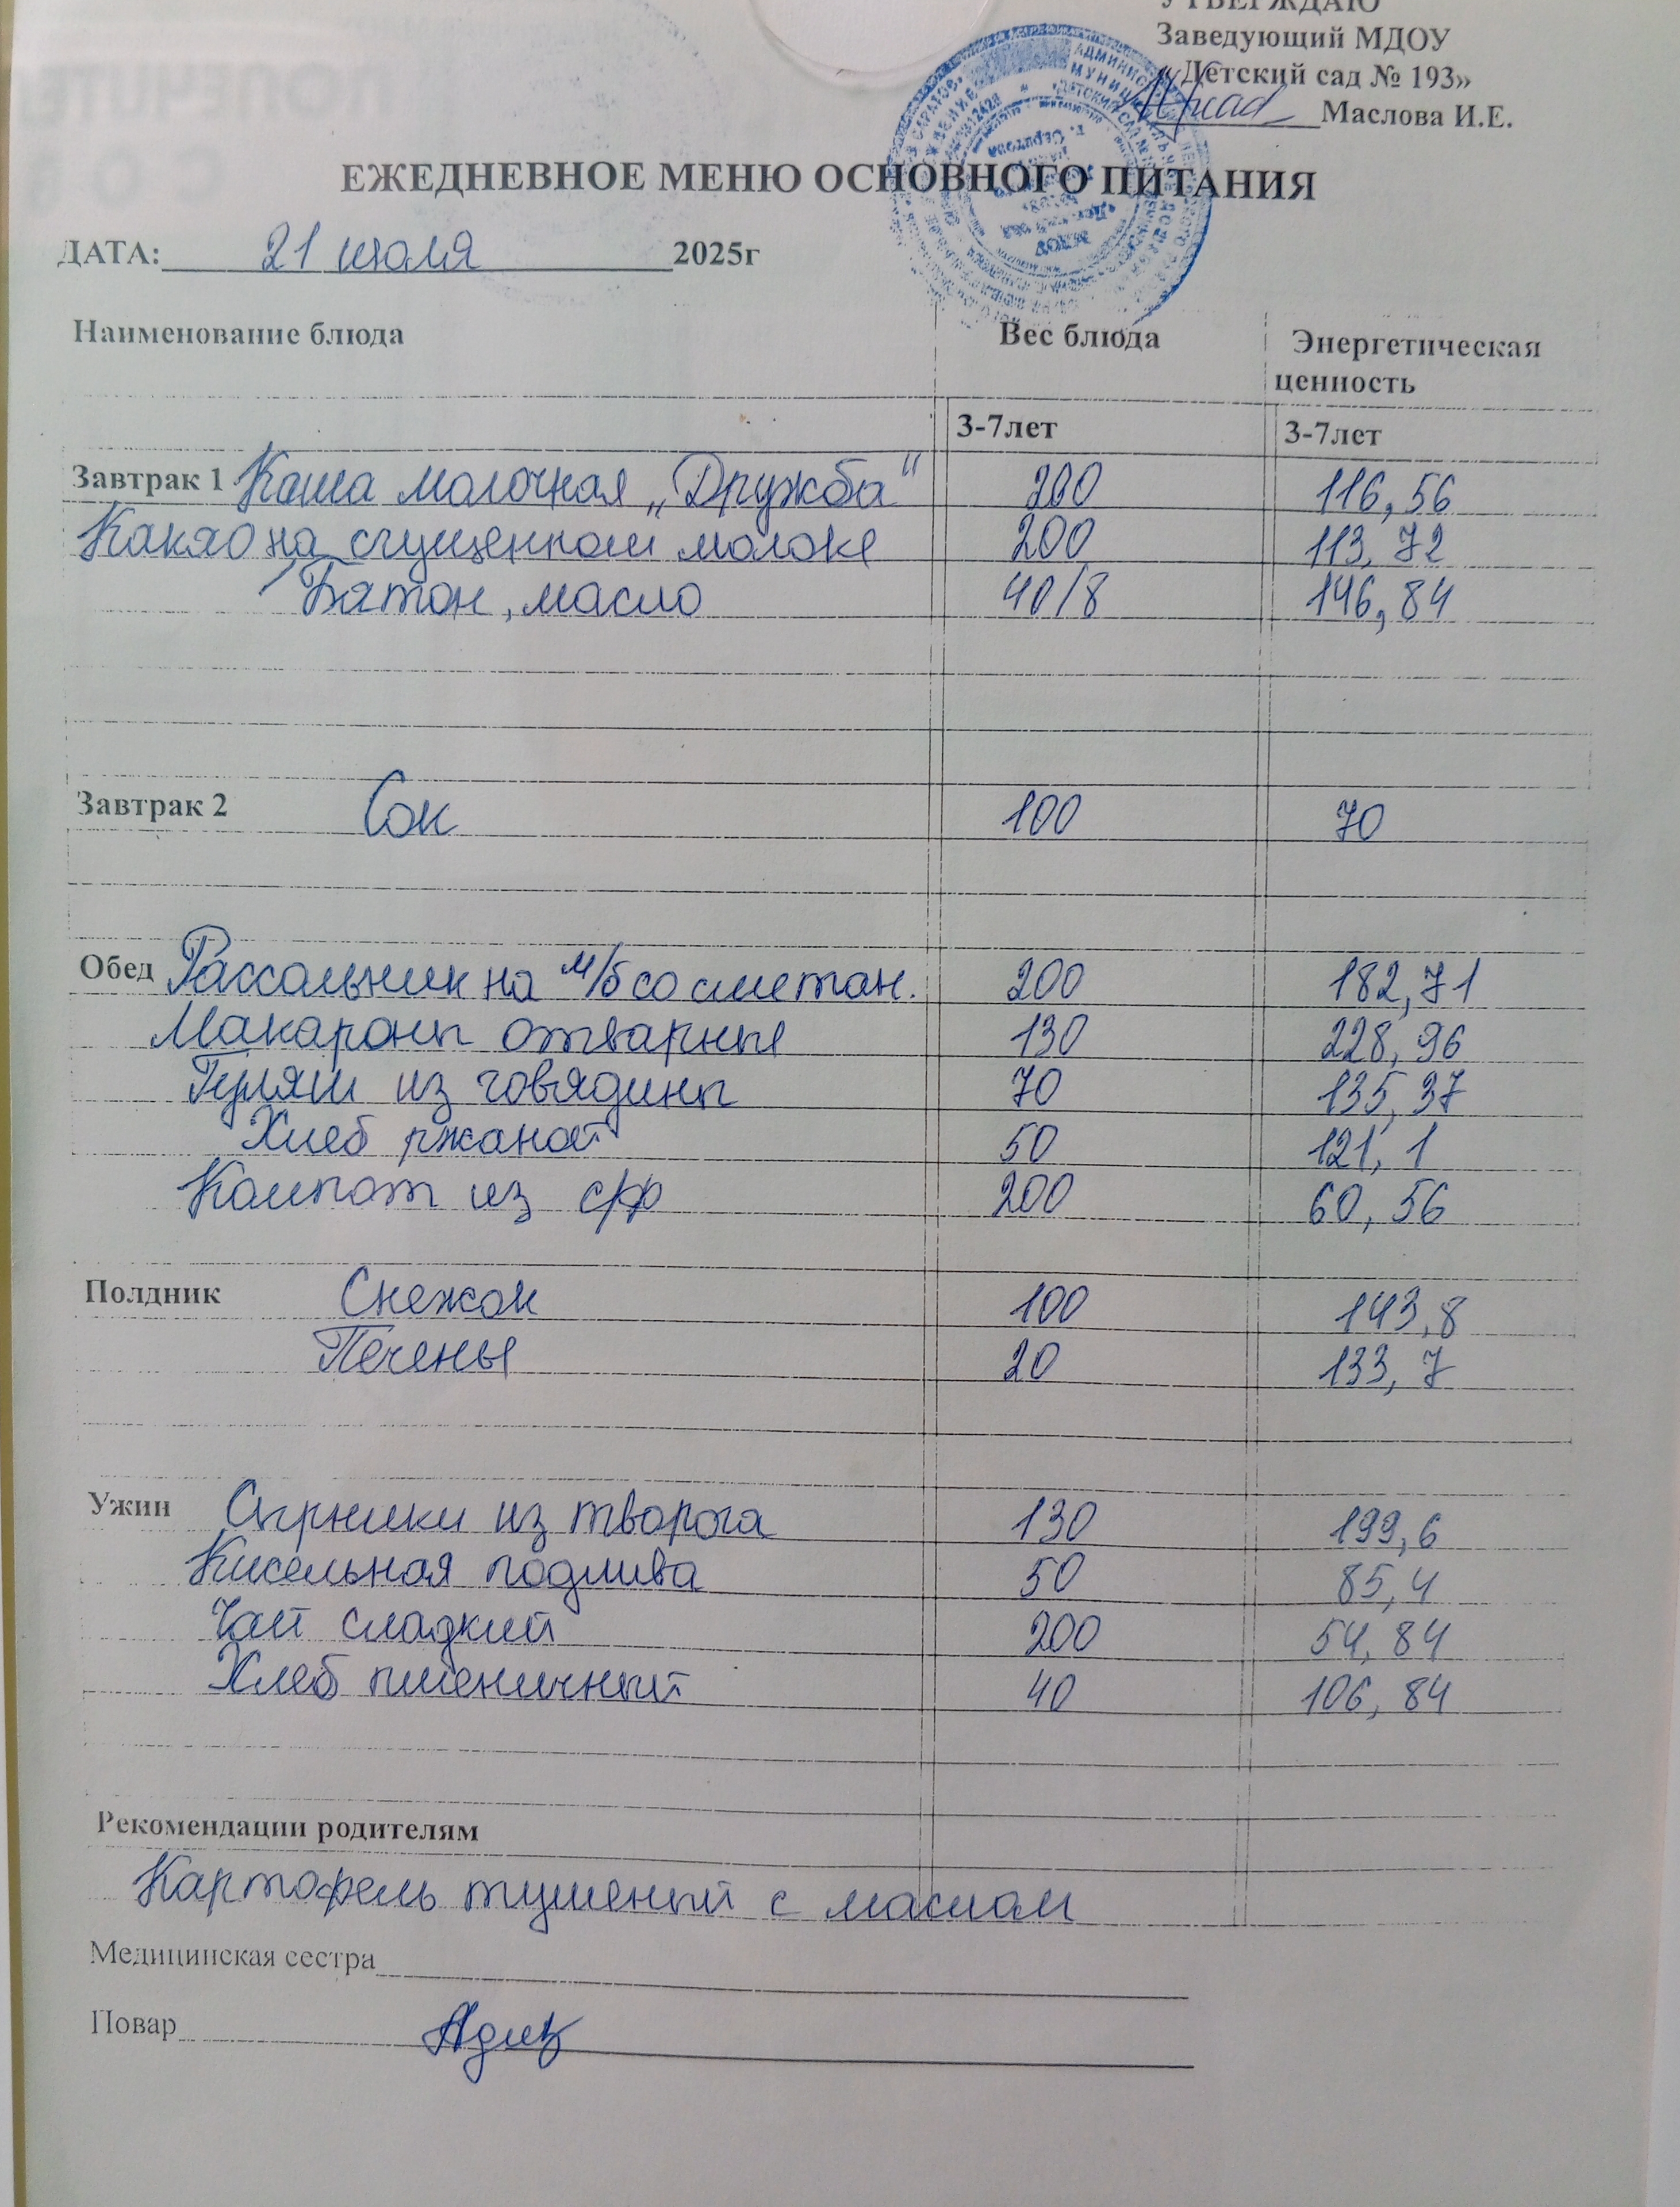 УТВЕРЖДАЮ
Заведующий МДОУ
«Детский сад № 193»
Маслова И.Е.
ЕЖЕДНЕВНОЕ МЕНЮ ОСНОВНОГО ПИТАНИЯ
ДАТА: 21 июля 2025г
Наименование блюда Вес блюда Энергетическая
ценность
3-7лет 3-7лет
Завтрак 1 Каша молочная „Дружба“ 200 116,56
Какао на сгущенном молоке 200 113,72
Батон, масло 40/8 146,84
Завтрак 2 Сок 100 70
Обед Рассольник на м/б со сметан. 200 182,71
Макароны отварные 130 228,96
Гуляш из говядины 70 135,37
Хлеб ржаной 50 121,1
Компот из с/ф 200 60,56
Полдник Снежок 100 143,8
Печенье 20 133,7
Ужин Сырники из творога 130 199,6
Кисельная подлива 50 85,4
Чай сладкий 200 54,84
Хлеб пшеничный 40 106,84
Рекомендации родителям
Картофель тушеный с маслом
Медицинская сестра
Повар